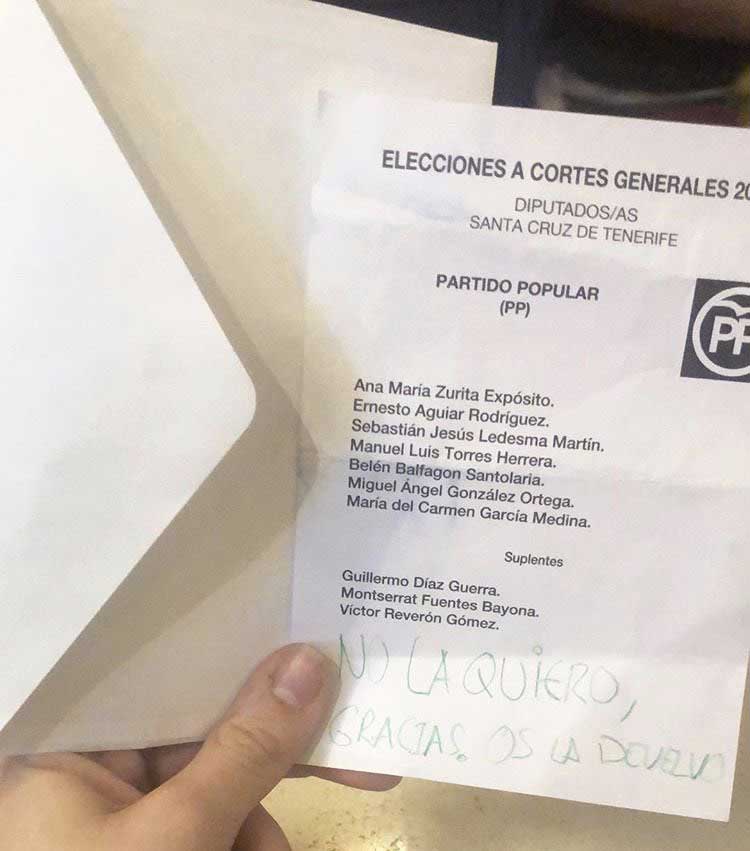 ELECCIONES A CORTES GENERALES 20
DIPUTADOS/AS
SANTA CRUZ DE TENERIFE
PARTIDO POPULAR
(PP)
PP
Ana María Zurita Expósito.
Ernesto Aguiar Rodríguez.
Sebastián Jesús Ledesma Martín.
Manuel Luis Torres Herrera.
Belén Balfagon Santolaria.
Miguel Ángel González Ortega.
María del Carmen García Medina.
Suplentes
Guillermo Díaz Guerra.
Montserrat Fuentes Bayona.
Víctor Reverón Gómez.
NO LA QUIERO,
GRACIAS. OS LA DEVUELVO